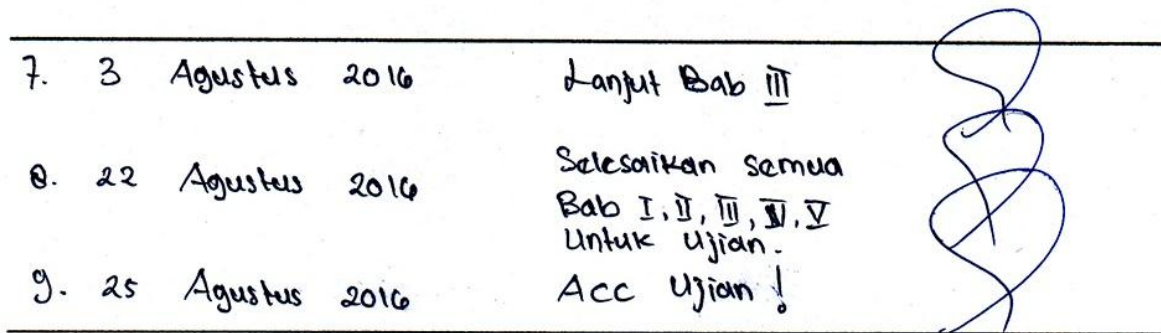 7. 3 Agustus 2016 Lanjut Bab III
8. 22 Agustus 2016 Selesaikan semua
Bab I, II, III, IV, V
Untuk Ujian.
9. 25 Agustus 2016 Acc Ujian !